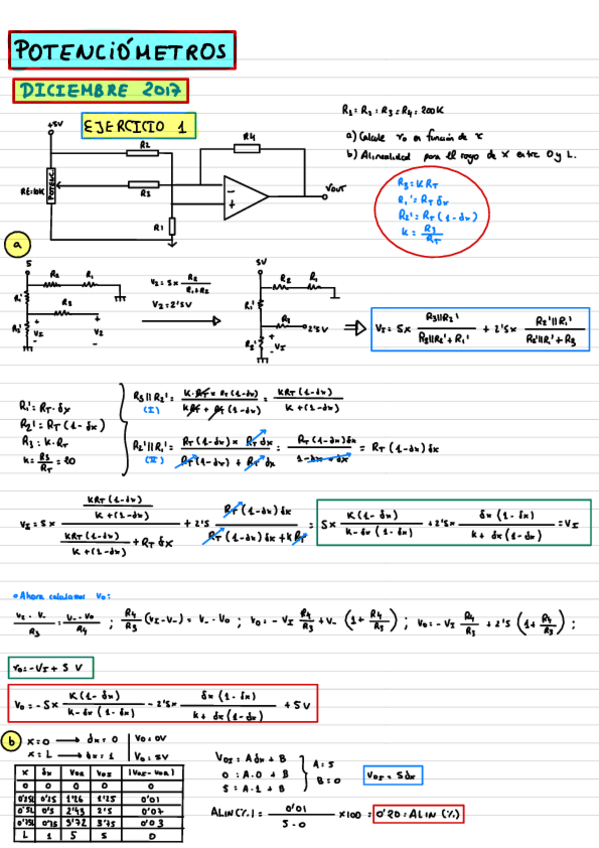 POTENCIÓMETROS
DICIEMBRE 2017
EJERCICIO 1
R1 = R2 = R3 = R4 = 200K
a) Calcule vo en función de x
b) Alinealidad para el rango de X entre 0 y L.
+5V
R2
R4
RE=10K
R3
VOUT
R1
R3 = K RT
R1' = RT δx
R2' = RT (1-δx)
K = R3/RT
a
5
R2 R1
R1'
R3
R2'
VI
V2
V2 = 5 x R2/(R1+R2)
V2 = 2'5V
5V
R2 R1
R1'
2'5V
R2'
VI
VI = 5x R3||R2'/(R3||R2' + R1') + 2'5x R2'||R1'/(R2'||R1' + R3)
R1' = RT · δx
R2' = RT (1-δx)
R3 = K · RT
K = R3/RT = 20
R3||R2' = K·RT x RT(1-δx)/(KRT + RT(1-δx)) = KRT(1-δx)/(K+(1-δx))
(I)
R2'||R1' = RT(1-δx) x RT δx/(RT(1-δx) + RT δx) = RT(1-δx)δx/(1-δx+δx) = RT(1-δx)δx
(II)
VI = 5x (KRT(1-δx)/(K+(1-δx)))/(KRT(1-δx)/(K+(1-δx)) + RT δx) + 2'5 RT(1-δx)δx/(RT(1-δx)δx + KRT) = 5x K(1-δx)/(K-δx(1-δx)) + 2'5x δx(1-δx)/(K+δx(1-δx)) = VI
• Ahora calculamos Vo:
VI-V-/R3 = V--Vo/R4 ; R4/R3 (VI-V-) = V--Vo ; Vo = -VI R4/R3 + V- (1+R4/R3) ; Vo = -VI R4/R3 + 2'5 (1+R4/R3) ;
Vo = -VI + 5 V
Vo = -5x K(1-δx)/(K-δx(1-δx)) - 2'5x δx(1-δx)/(K+δx(1-δx)) + 5V
b
X=0 → δx=0 | Vo=0V
X=L → δx=1 | Vo=5V
X δx VOR VOI |VOI-VOR|
0 0 0 0 0
0'25L 0'25 1'26 1'25 0'01
0'5L 0'5 2'43 2'5 0'07
0'75L 0'75 3'72 3'75 0'03
L 1 5 5 0
VOI = Aδx + B
0 = A·0 + B
5 = A·1 + B
A = 5
B = 0
VOI = 5δx
ALIN(%) = 0'01/(5-0) x100 = 0'20 = ALIN (%)